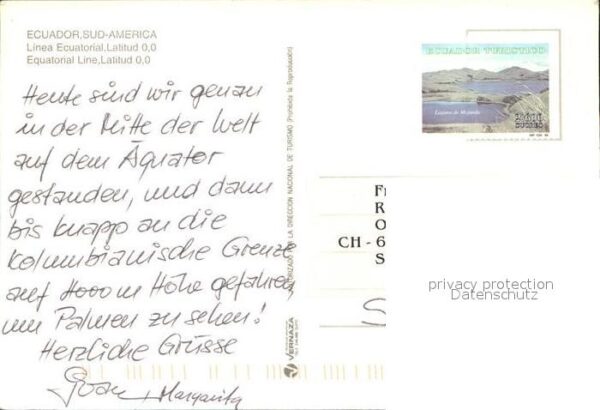 ECUADOR, SUD-AMERICA
Línea Ecuatorial, Latitud 0,0
Equatorial Line, Latitud 0,0
Heute sind wir genau
in der Mitte der Welt
auf dem Äquator
gestanden, und dann
bis knapp an die
kolumbianische Grenze
auf 4000 m Höhe gefahren,
um Palmen zu sehen!
Herzliche Grüsse
+ Margarita
AUTORIZADO POR LA DIRECCIÓN NACIONAL DE TURISMO (Prohibida la Reproducción)
VERNAZA
ECUADOR TURISTICO
SUCRES
F
R
O
CH - 6
S
S
privacy protection
Datenschutz